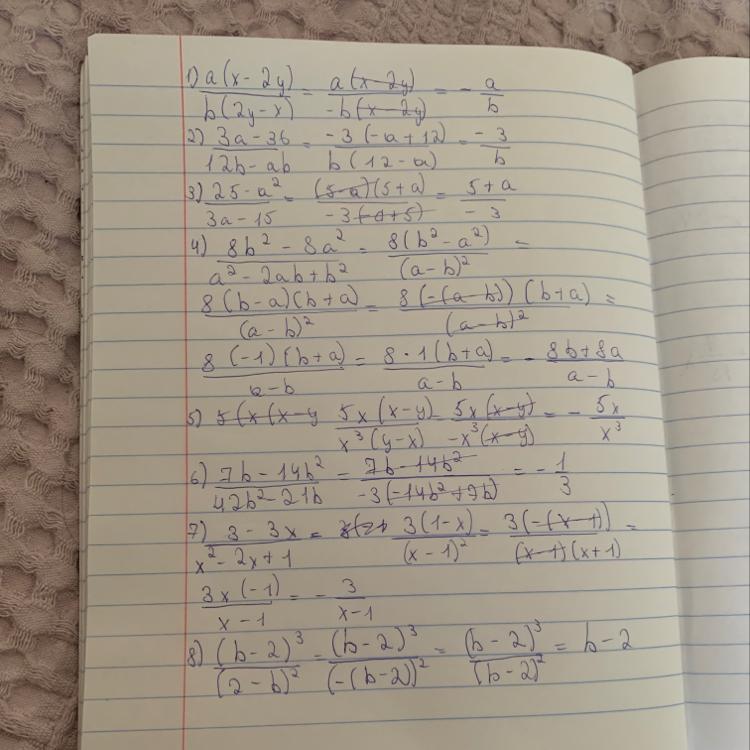 1) a(x-2y)/b(2y-x) = a(x-2y)/-b(x-2y) = - a/b
2) 3a-36/12b-ab = -3(-a+12)/b(12-a) = -3/b
3) 25-a²/3a-15 = (5-a)(5+a)/-3(-a+5) = 5+a/-3
4) 8b²-8a²/a²-2ab+b² = 8(b²-a²)/(a-b)² =
8(b-a)(b+a)/(a-b)² = 8(-(a-b))(b+a)/(a-b)² =
8(-1)(b+a)/a-b = 8·1(b+a)/a-b = - 8b+8a/a-b
5) 5(x(x-y 5x(x-y)/x³(y-x) = 5x(x-y)/-x³(x-y) = - 5x/x³
6) 7b-14b²/42b²-21b = 7b-14b²/-3(-14b²+7b) = - 1/3
7) 3-3x/x²-2x+1 = 3(1-x)/(x-1)² = 3(-(x-1))/(x-1)(x+1) =
3x(-1)/x-1 = - 3/x-1
8) (b-2)³/(2-b)² = (b-2)³/(-(b-2))² = (b-2)³/(b-2)² = b-2